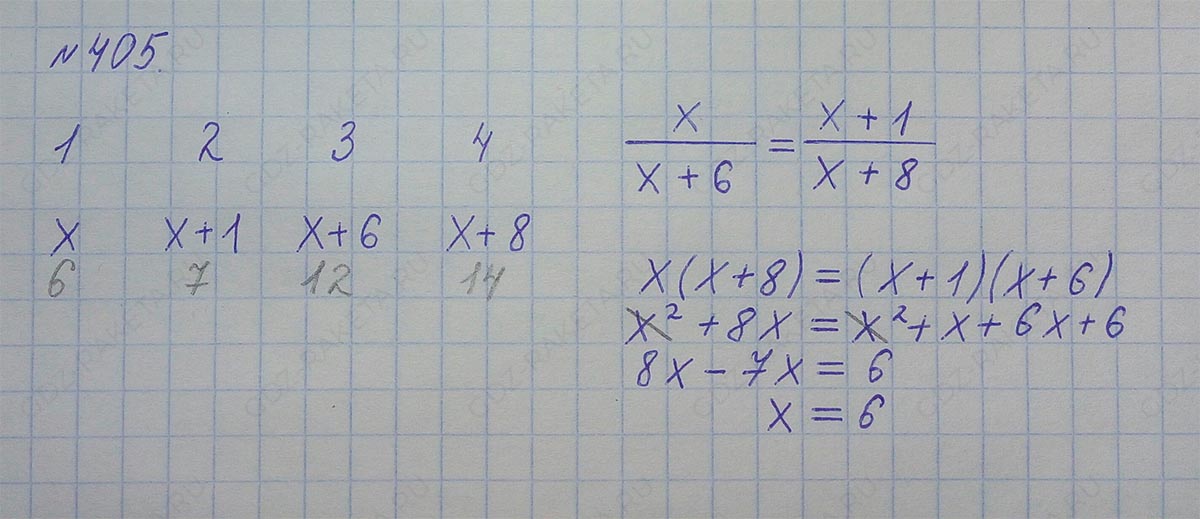 №405.
1 2 3 4
x x+1 x+6 x+8
6 7 12 14
x/(x+6) = (x+1)/(x+8)
x(x+8)=(x+1)(x+6)
x²+8x=x²+x+6x+6
8x-7x=6
x=6
GDZ-RAKETA.RU